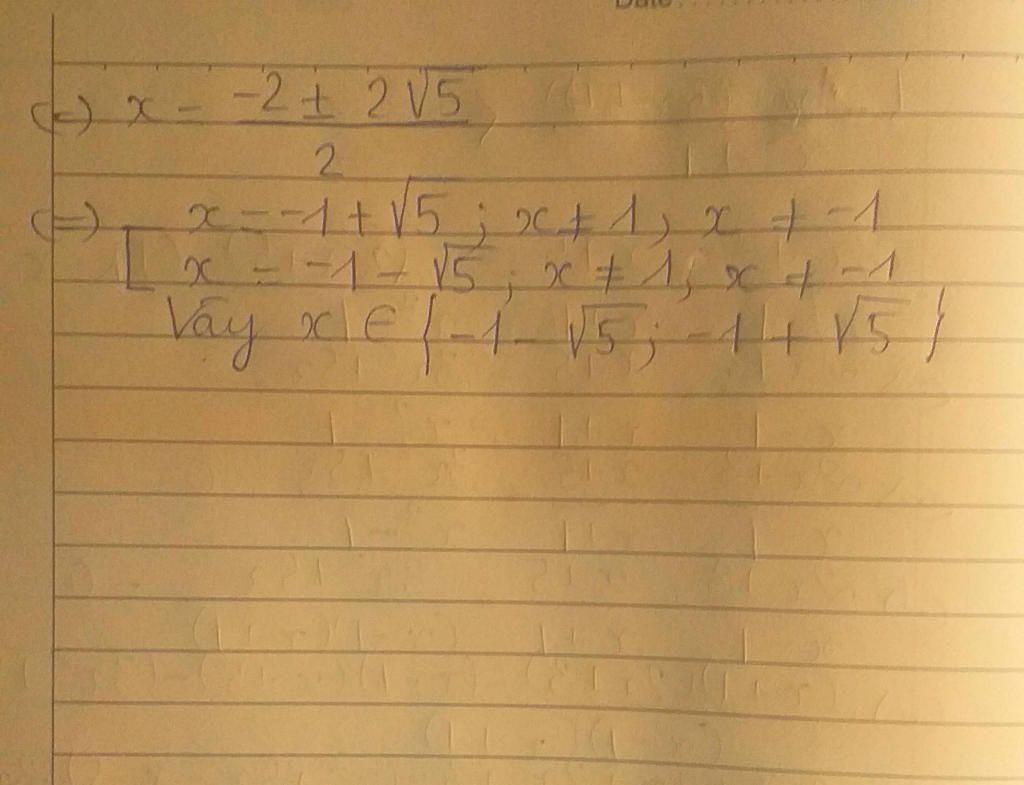 Date:
(=) x = \frac{-2 ± 2√5}{2}
(=) [ x = -1 + √5 ; x ≠ 1, x ≠ -1
x = -1 - √5 ; x ≠ 1, x ≠ -1
Vậy x ∈ {-1 - √5 ; -1 + √5}